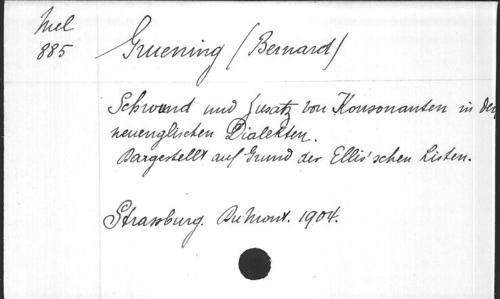 Mel
885
Gruening (Bernard)
Schwund und Zusatz von Konsonanten in den
neuenglischen Dialekten.
Dargestellt auf Grund der Ellis'schen Listen.
Strassburg. DuMont. 1904.